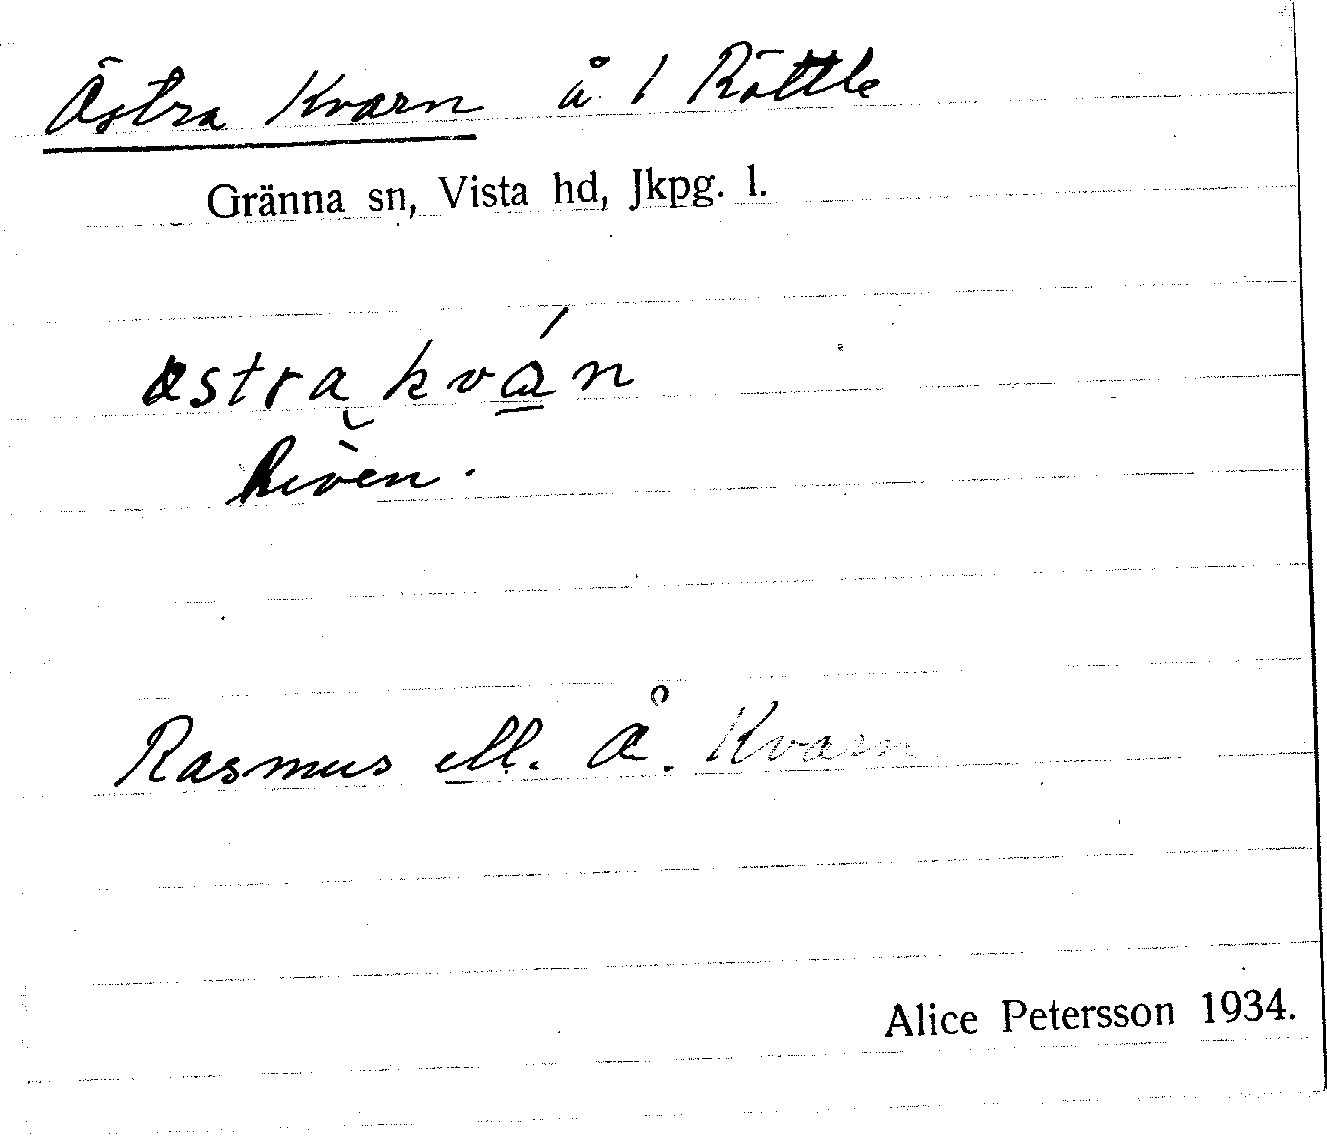 Östra Kvarn å 1 Röttle
Gränna sn, Vista hd, Jkpg. l.
östra kván
Rasmus ell. Å. Kvarn
Alice Petersson 1934.